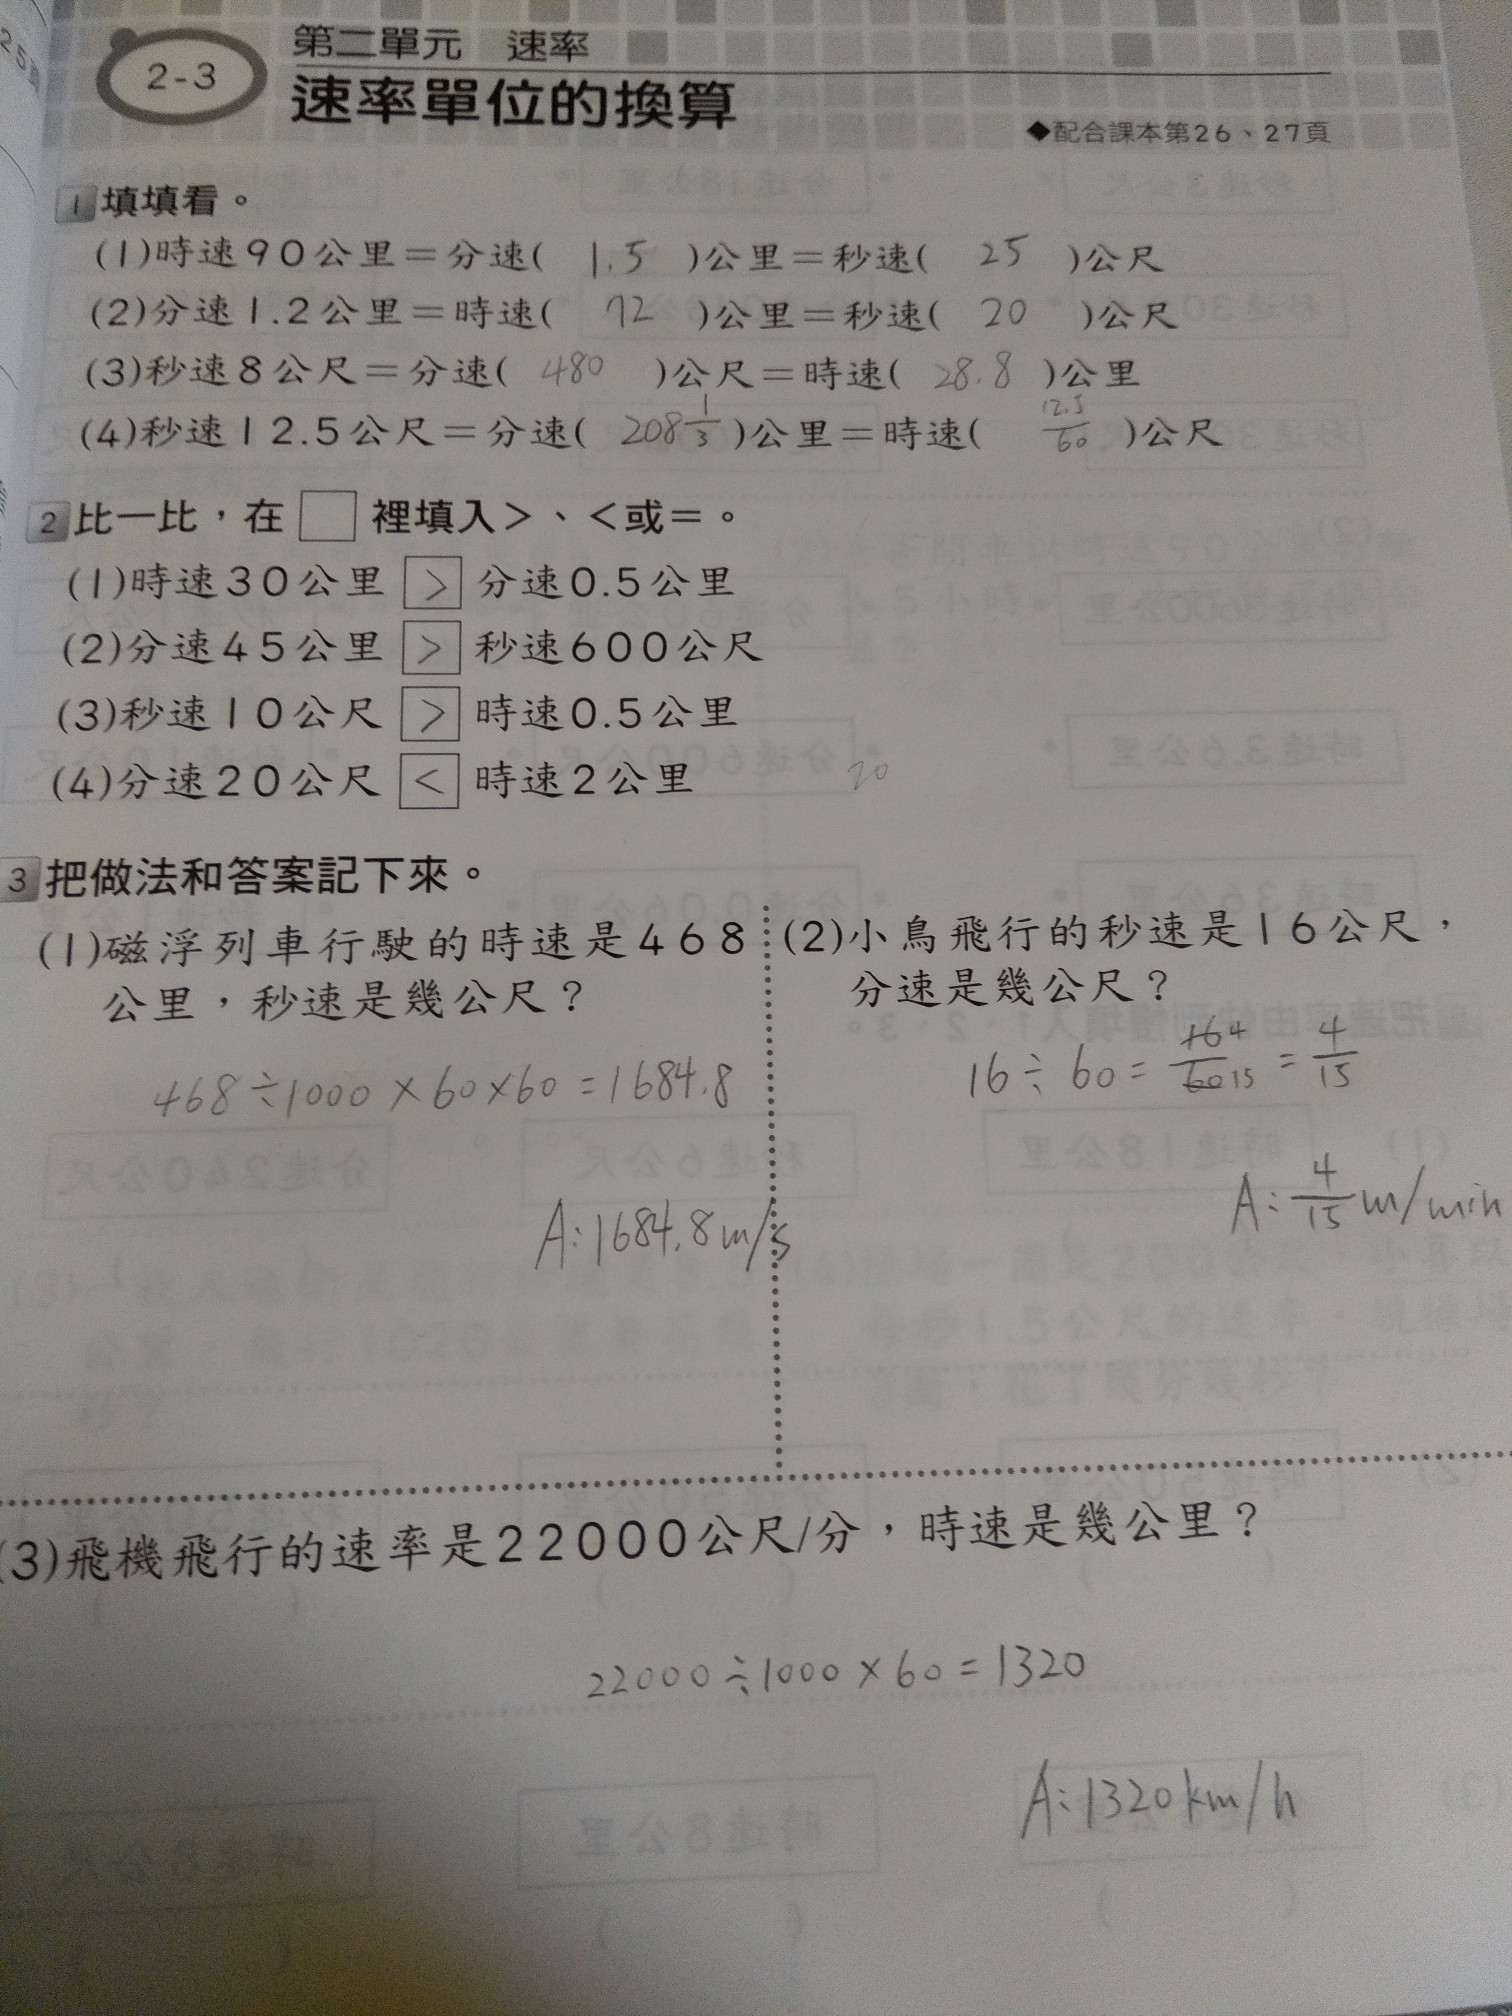 2-3
第二單元 速率
速率單位的換算
◆配合課本第26、27頁
1 填填看。
(1)時速90公里＝分速( 1.5 )公里＝秒速( 25 )公尺
(2)分速1.2公里＝時速( 72 )公里＝秒速( 20 )公尺
(3)秒速8公尺＝分速( 480 )公尺＝時速( 28.8 )公里
(4)秒速12.5公尺＝分速( 208 1/3 )公里＝時速( 12.5/60 )公尺
2 比一比，在□裡填入＞、＜或＝。
(1)時速30公里 ＞ 分速0.5公里
(2)分速45公里 ＞ 秒速600公尺
(3)秒速10公尺 ＞ 時速0.5公里
(4)分速20公尺 ＜ 時速2公里 20
3 把做法和答案記下來。
(1)磁浮列車行駛的時速是468
公里，秒速是幾公尺？
468÷1000×60×60=1684.8
A:1684.8m/s
(2)小鳥飛行的秒速是16公尺，
分速是幾公尺？
16÷60= 16 4/60 15 = 4/15
A: 4/15 m/min
(3)飛機飛行的速率是22000公尺/分，時速是幾公里？
22000÷1000×60=1320
A:1320km/h